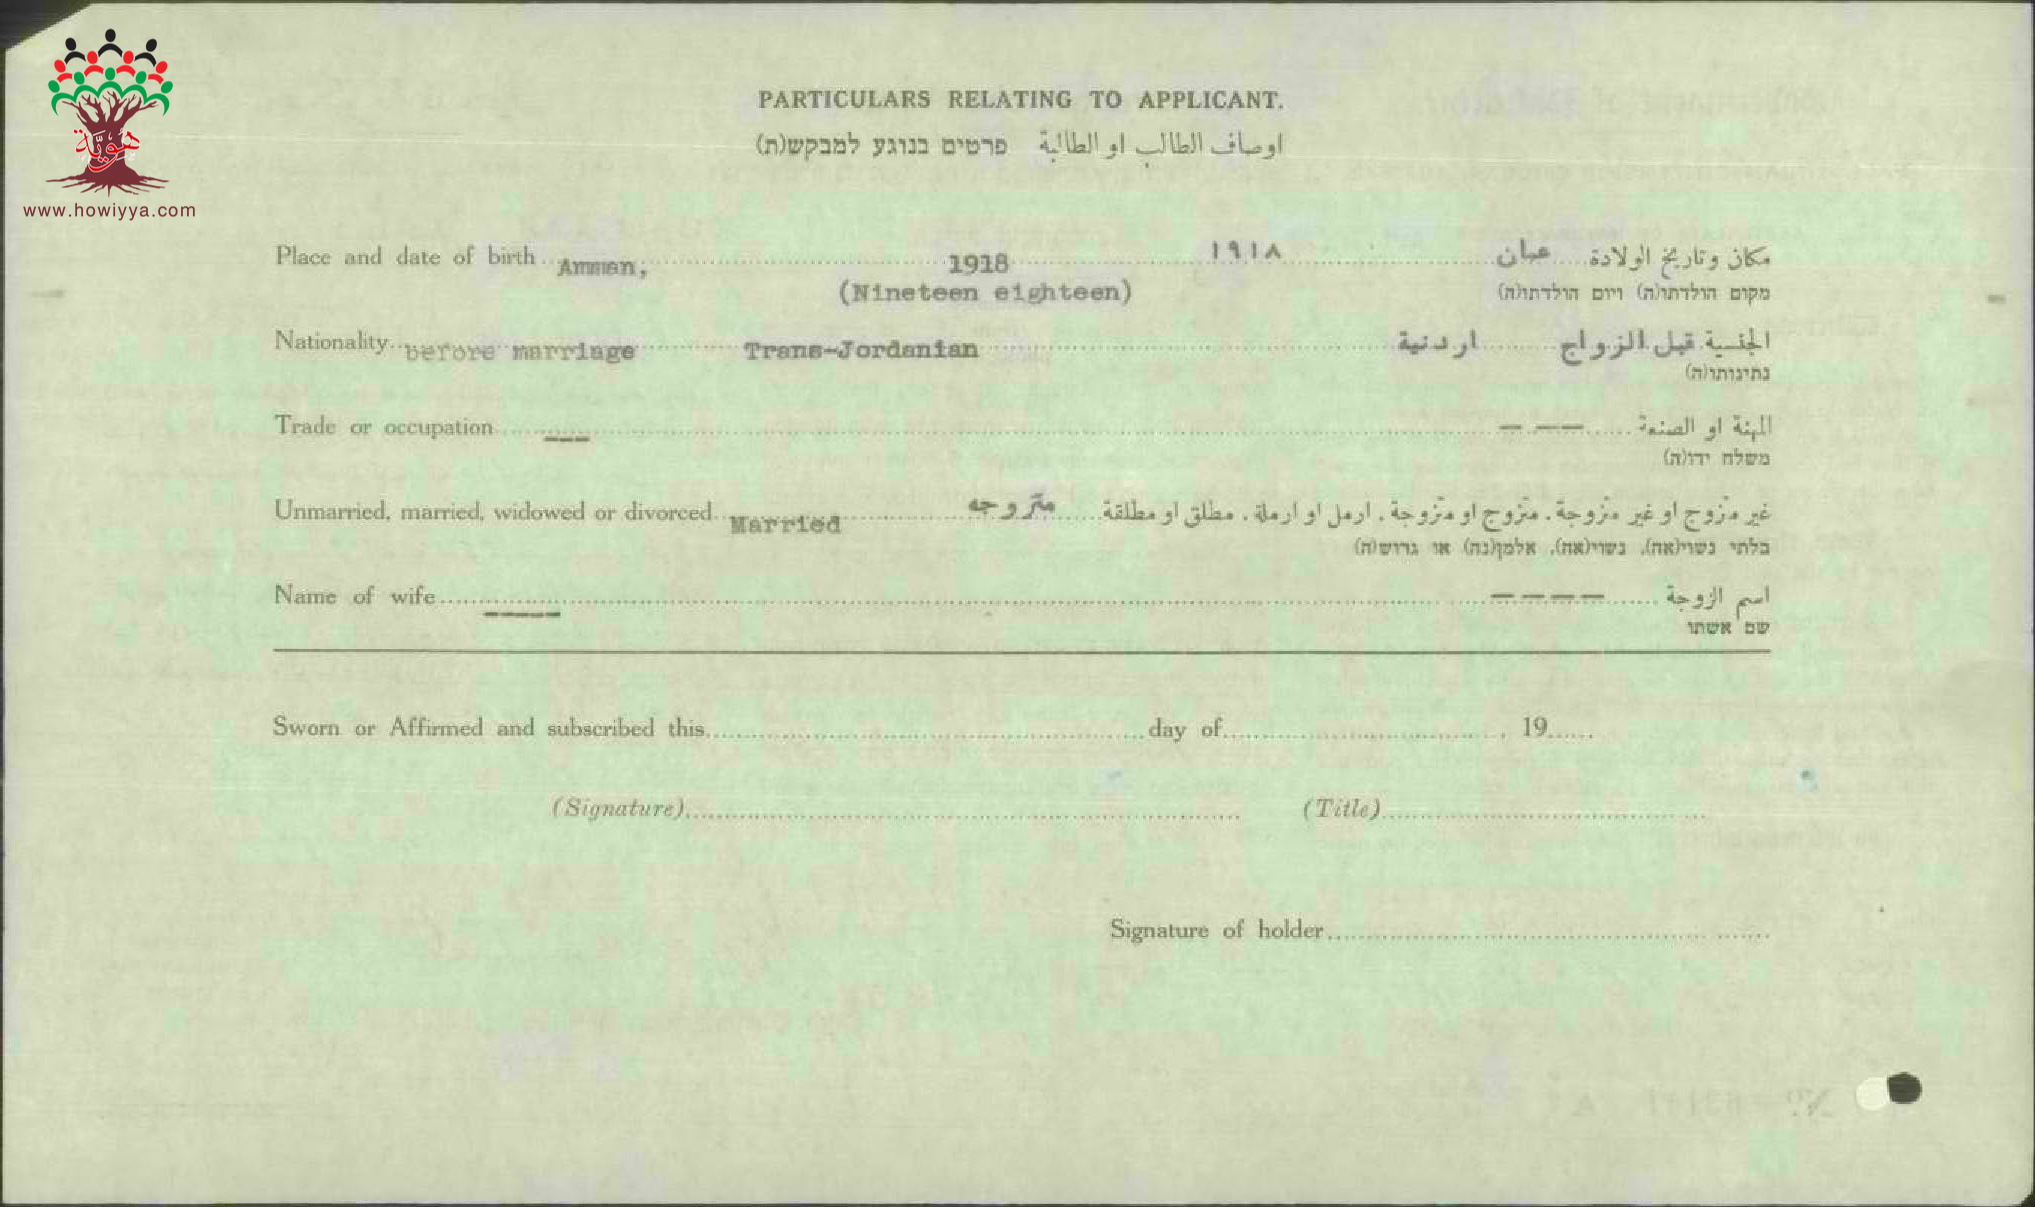 هوية
www.howiyya.com
PARTICULARS RELATING TO APPLICANT.
اوصاف الطالب او الطالبة פרטים בנוגע למבקש(ת)
Place and date of birth Amman, 1918 ١٩١٨ عمان مكان وتاريخ الولادة
(Nineteen eighteen) מקום הולדתו(ה) ויום הולדתו(ה)
Nationality before marriage Trans-Jordanian اردنية الجنسية قبل الزواج
נתינותו(ה)
Trade or occupation --- — — — المهنة او الصنعة
משלח ידו(ה)
Unmarried, married, widowed or divorced Married متزوجه غير متزوج او غير متزوجة . متزوج او متزوجة . ارمل او ارملة . مطلق او مطلقة
בלתי נשוי(אה), נשוי(אה), אלמן(נה) או גרוש(ה)
Name of wife ----- — — — — اسم الزوجة
שם אשתו
Sworn or Affirmed and subscribed this day of . 19
(Signature) (Title)
Signature of holder